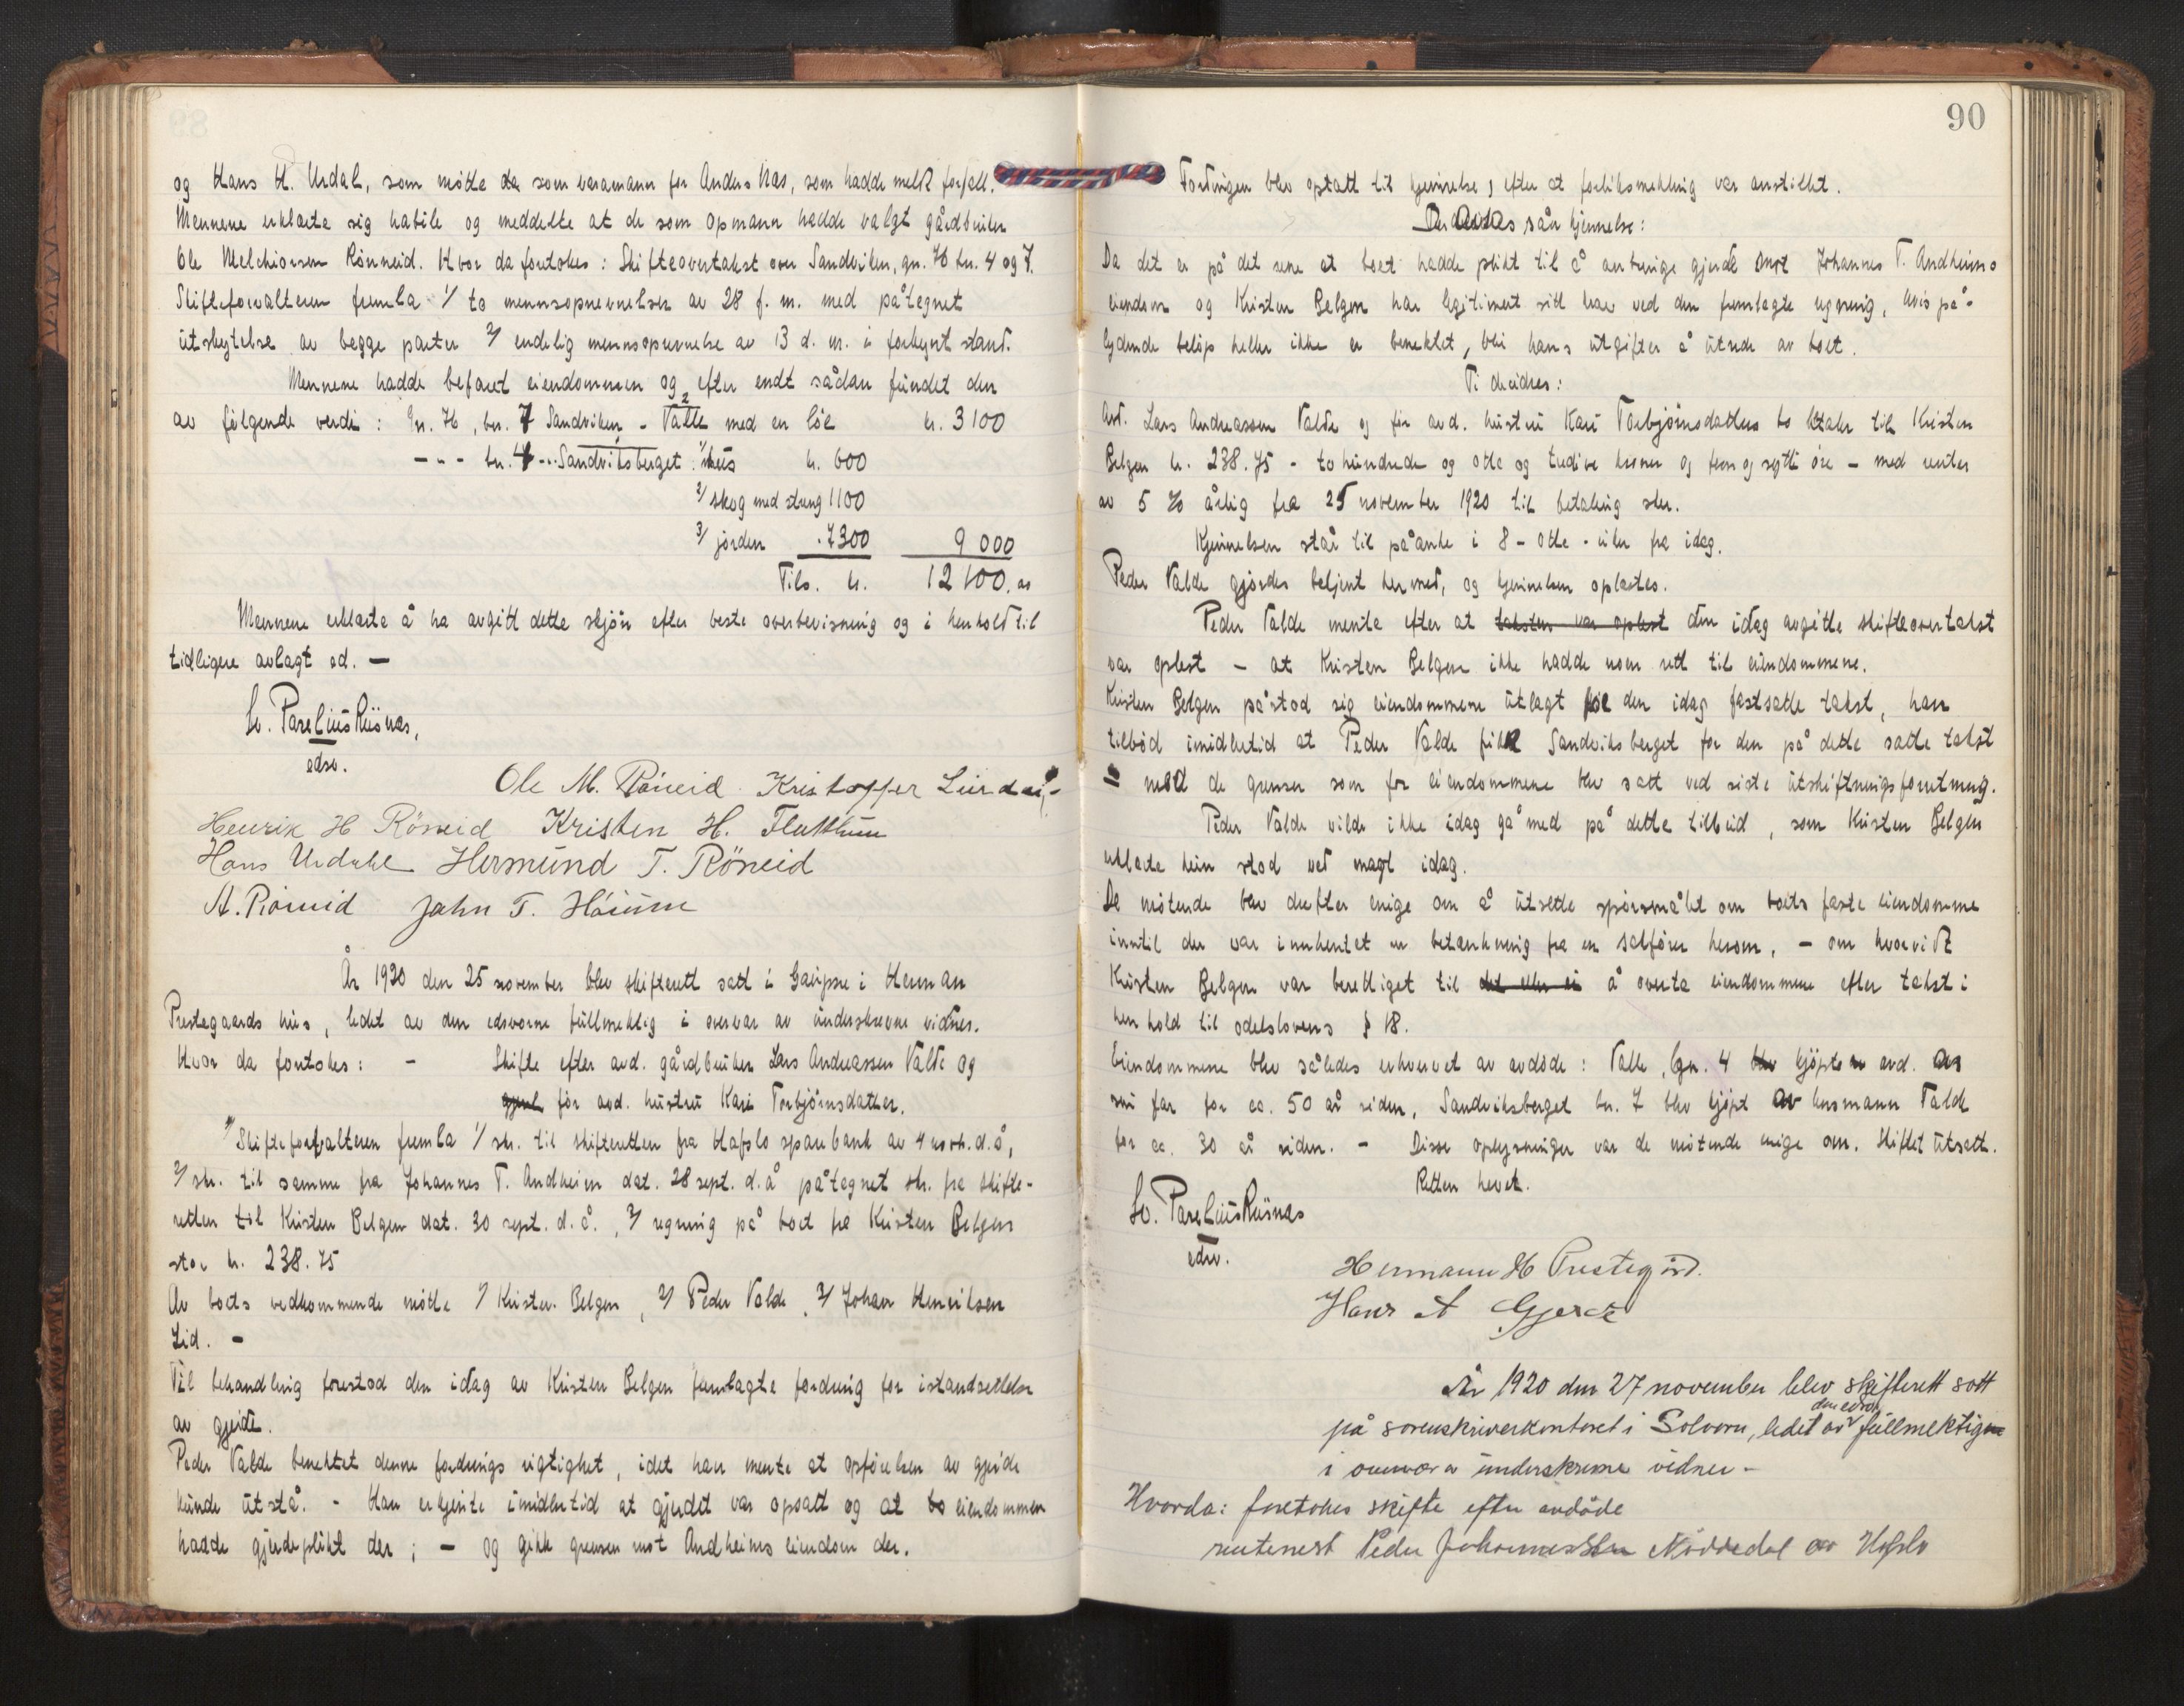 og Hans H. Urdal, som møtte da som varamann for Anders Næs, som hadde meldt forfall.
Mennene erklærte sig habile og meddelte at de som opmann hadde valgt gårdbruker
Ole Melchiorsen Rønneid. Hvor da foretokes: Skifteovertakst over Sandviken, gn. 76 bn. 4 og 7.
Skifteforvalteren fremla 1/ to mennsopnevnelser av 28 f. m. med påtegnet
utskytelse av begge parter 2/ endelig mennsopnevnelse av 13 d. m. i forkynt stand.
Mennene hadde befaret eiendommen og efter endt sådan fundet den
av følgende verdi: Gn. 76, bn. 7 Sandviken - Valle med en löe kr. 3100
- - - bn. 4 - .. Sandviksberget: 1/ hus kr. 600
2/ skog med strang 1100
3/ jorden . 7300 9 000
Tils. kr. 12 100.00
Mennene erklærte å ha avgitt dette skjön efter beste overbevisning og i henhold til
tidligere avlagt ed. —
Kr. Parelius Riisnæs,
edsv.
Ole M. Röneid. Kristoffer Lirdal,
Henrik H Röneid Kristen H. Flattum
Hans Urdahl Hermund T. Röneid
A. Röneid John T. Höium
År 1920 den 25 november blev skifterett satt i Gaupne i Herman
Prestegaards hus, ledet av den edsvorne fullmektig i overvær av underskrevne vidner.
Hvor da foretokes: - Skifte efter avd. gårdbruker Lars Andreassen Valde og
gjenl för avd. hustru Kari Torbjörnsdatter.
Skifteforvalteren fremla 1/ skr. til skifteretten fra Hafslo sparebank av 4 novb. d.å,
2/ skr. til samme fra Johannes T. Andheim dat. 28 sept. d.å påtegnet skr. fra skifte-
retten til Kristen Belgen dat. 30 sept. d.å., 3/ regning på boet fra Kristen Belgen
stor kr. 238.75
Av boets vedkommende møtte 1/ Kristen Belgen, 2/ Peder Valde, 3/ Johan Henriksen
Lid. -
Til behandling forestod den idag av Kristen Belgen fremlagte fordring for istandsettelse
av gjerde.
Peder Valde benektet denne fordrings rigtighet, idet han mente at opførelsen av gjerde
kunde utstå. - Han erkjente imidlertid at gjerdet var opsatt og at bo eiendommen
hadde gjerdeplikt der; - og gikk grensen mot Andheims eiendom der.
90
Fordringen blev optatt til kjennelse, efter at forliksmekling var anstillet.
Der avsas sån kjennelse:
Da det er på det rene at boet hadde plikt til å anbringe gjerde mot Johannes T. Andheims
eiendom og Kristen Belgen har legitimert sitt krav ved den fremlagte regning, hvis på-
lydende beløp heller ikke er benektet, blir hans utgifter å utrede av boet.
Ti decideres:
Avd. Lars Andreassen Valde og för avd. hustru Kari Torbjörnsdatters bo betaler til Kristen
Belgen kr. 238.75 - tohundrede og otte og tredive kroner og fem og sytti øre - med renter
av 5 % årlig fra 25 november 1920 til betaling sker.
Kjennelsen står til påanke i 8 - otte - uker fra idag.
Peder Valde gjordes bekjent hermed, og kjennelsen oplæstes.
Peder Valde mente efter at taksten var oplest den idag avgitte skifteovertakst
var oplest - at Kristen Belgen ikke hadde noen rett til eiendommene.
Kristen Belgen påstod sig eiendommene utlagt för den idag fastsatte takst, han
tilböd imidlertid at Peder Valde fikk Sandviksberget for den på dette satte takst
- med de grenser som for eiendommene blev satt ved siste utskiftningsforretning.
Peder Valde vilde ikke idag gå med på dette tilbud, som Kristen Belgen
erklærte kun stod ved magt idag.
De møtende blev derefter enige om å utsette spørsmålet om boets faste eiendomme
inntil der var innhentet en betenkning fra en sakfører herom, - om hvorvidt
Kristen Belgen var berettiget til det eller ei å overta eiendommene efter takst i
henhold til odelslovens § 18.
Eiendommene blev således erhvervet av avdøde: Valle, bn. 4 blev kjöpt av avd. av
sin far for ca. 50 år siden, Sandviksberget bn. 7 blev kjöpt av husmann Valde
for ca. 30 år siden. - Disse oplysninger var de møtende enige om. Skiftet utsatt.
Retten hevet.
Kr. Parelius Riisnæs
edsv.
Hermann H Prestegård.
Hans A Gjerde
År 1920 den 27 november blev skifterett satt
på sorenskriverkontoret i Solvorn, ledet av den edsv. fullmektigen
i overvær av underskrevne vidner -
Hvorda: foretokes skifte efter avdöde
rentenest Peder Johannessen Nöddedal av Hafslo